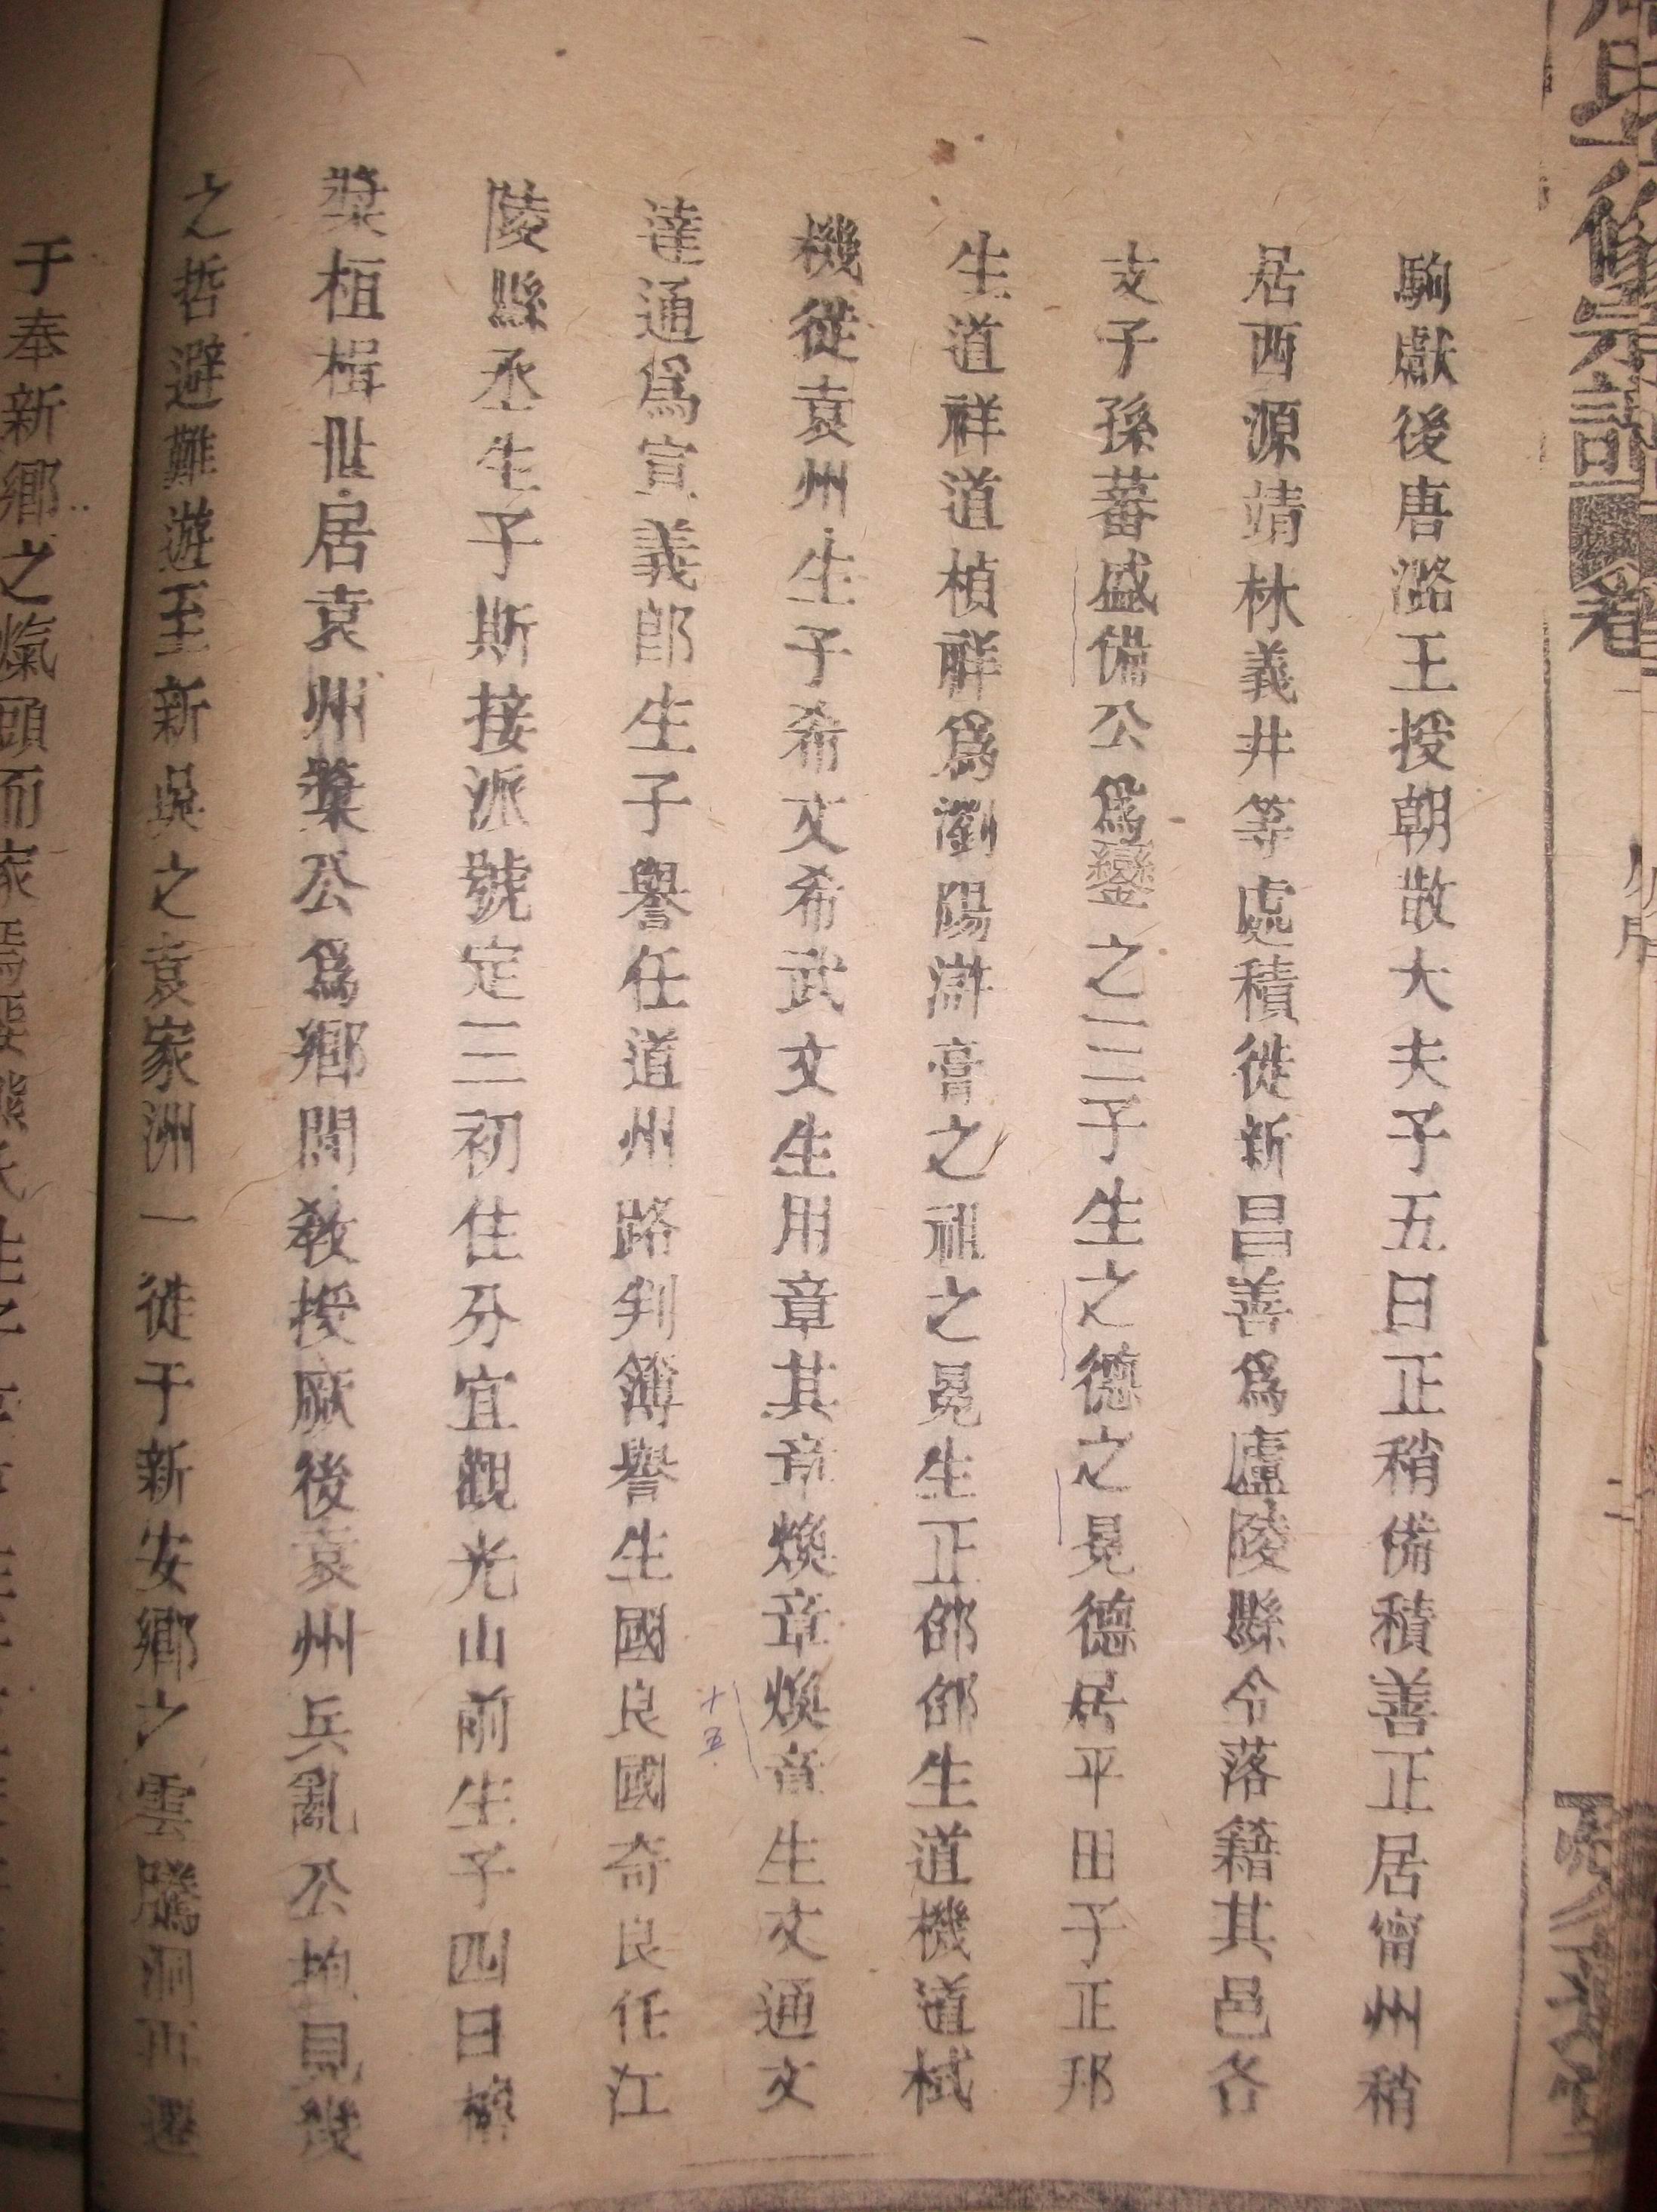 駒獻後唐潞王授朝散大夫子五曰正稍備積善正居甯州稍
居西源靖林義井等處積徙新昌善爲廬陵縣令落籍其邑各
支子孫蕃盛備公爲鑾之三子生之德之晃德居平田子正邦
生道祥道楨祥爲瀏陽滸膏之祖之晃生正邵邵生道機道栻
機從袁州生子希文希武文生用章其章煥章煥章生文通文
達通爲宣義郎生子譽任道州路判簿譽生國良國奇良任江
陵縣丞生子斯接派號定三初住分宜觀光山前生子四曰
桓楫世居袁州公爲鄉閭教授厥後袁州兵亂公見幾
之哲避難遊至新吳之袁家洲一徙于新安鄉之雲騰洞再遷
于奉新鄉之
而家
十五